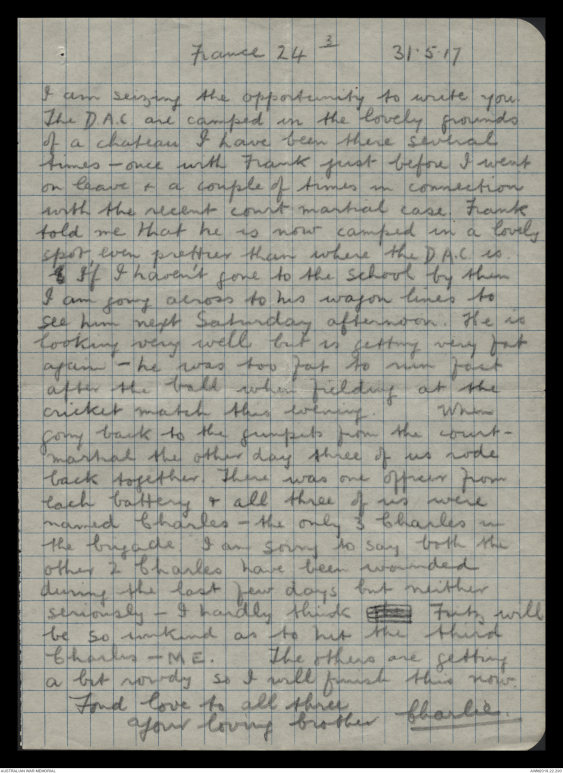 France 24 3 31.5.17
I am seizing the opportunity to write you.
The D.A.C are camped in the lovely grounds
of a chateau I have been there several
times - once with Frank just before I went
on leave & a couple of times in connection
with the recent court martial case. Frank
told me that he is now camped in a lovely
spot even prettier than where the D.A.C. is.
If I haven't gone to the school by then
I am going across to his wagon lines to
see him next Saturday afternoon. He is
looking very well but is getting very fat
again - he was too fat to run fast
after the ball when fielding at the
cricket match this evening. When
going back to the gunpits from the court-
martial the other day three of us rode
back together. There was one officer from
each battery & all three of us were
named Charles - the only 3 Charles in
the brigade. I am sorry to say both the
other 2 Charles have been wounded
during the last few days but neither
seriously - I hardly think Fritz will
be so unkind as to hit the third
Charles - ME. The others are getting
a bit rowdy so I will finish this now.
Fond love to all three
Your loving brother Charlie.
AUSTRALIAN WAR MEMORIAL
AWM2019.22.200